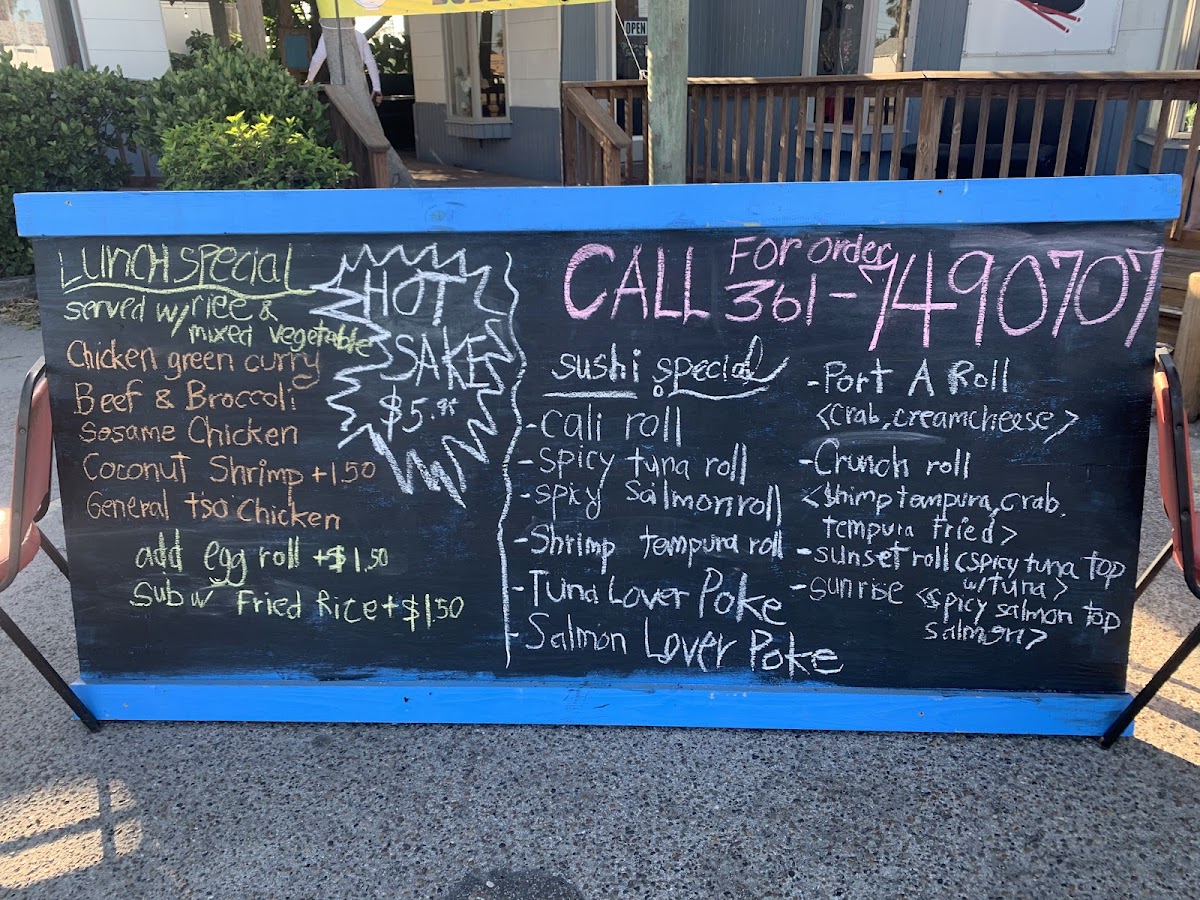 OPEN
LUNCH SPECIAL
served w/ rice &
mixed vegetable
Chicken green curry
Beef & Broccoli
Sesame Chicken
Coconut Shrimp +1.50
General tso Chicken
add egg roll +$1.50
Sub w/ Fried Rice +$1.50
HOT
SAKE
$5.95
CALL FOR Order
361-7490707
sushi special
-cali roll
-spicy tuna roll
-spicy Salmon roll
-Shrimp tempura roll
-Tuna Lover Poke
-Salmon Lover Poke
-Port A Roll
<crab, creamcheese>
-Crunch roll
<shimp tempura, crab,
tempura fried>
-sunset roll <spicy tuna top
w/ tuna>
-sunrise <spicy salmon top
salmon>